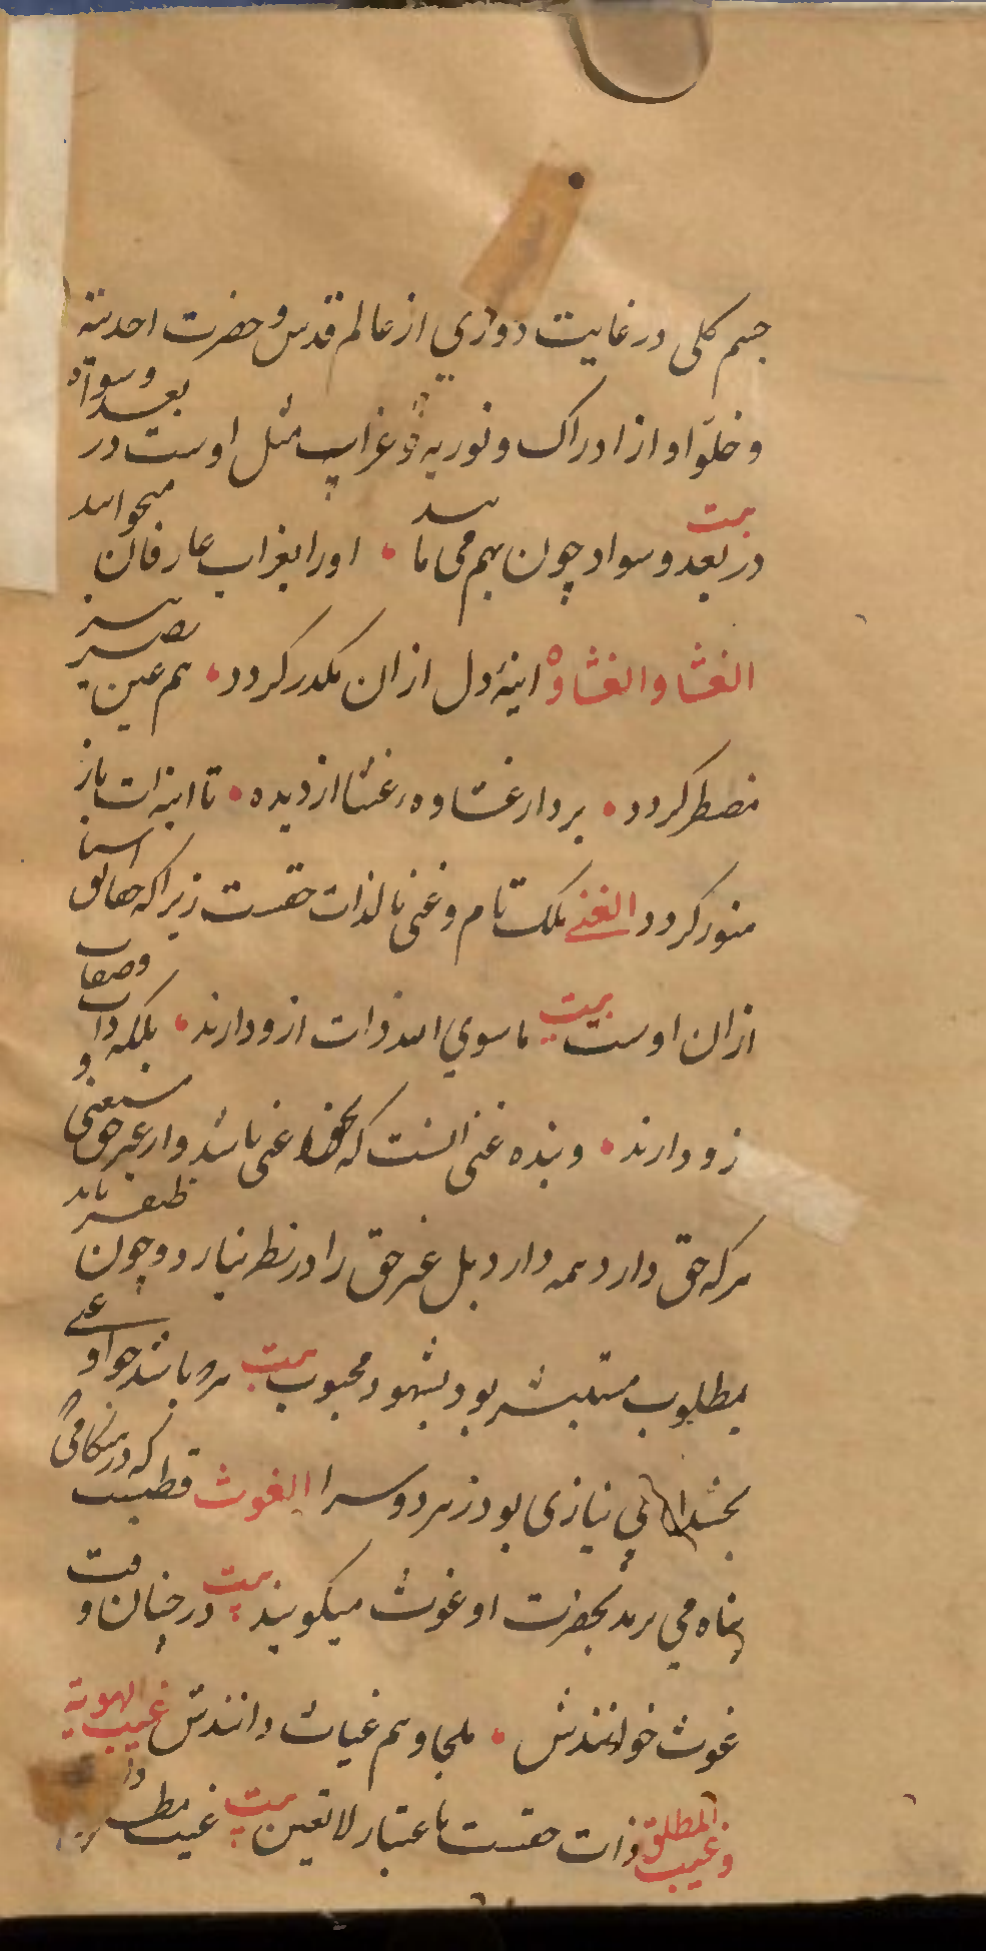 جسم کلی در غایت دوری از عالم قدس و حضرت احدیته
و خلو او از ادراک و نوریه و غراب مثل اوست در بعد و سواد
بیت در بعد و سواد چون بهم می مانند • او را بغراب عارفان میخوانند
الغشا والغشاوه اینۀ دل ازان مکدر گردد • هم عین بصیر
منصطر گردد • بردار غشاوه، غشا از دیده • تا اینه ات باز
منور گردد الغنی ملک تام و غنی بالذات حقست زیرا که حقایق اشیا
ازان اوست بیت ماسوی الله ذات ازو دارند • بلکه ذات و صفات
زو دارند • و بنده غنی انست که بحق غنی باشد و از غیر حق مستغنی و
هرکه حق دارد همه دارد بل غیر حق را در نظر نیارد و چون ظفر یابد
بمطلوب مستبشر بود بشهود محبوب بیت هرو باشد جواد غنی
بخشد بی نیازی بود ز هر دو سرا الغوث قطبست که در هنگامی
پناه می برند بحضرت او غوث میگویند بیت در چنان وقت
غوث خوانندش • ملجا و هم غیاث دانندش غیب الهویة
وغیب المطلق ذات حقست باعتبار لاتعین بیت غیب مطلق